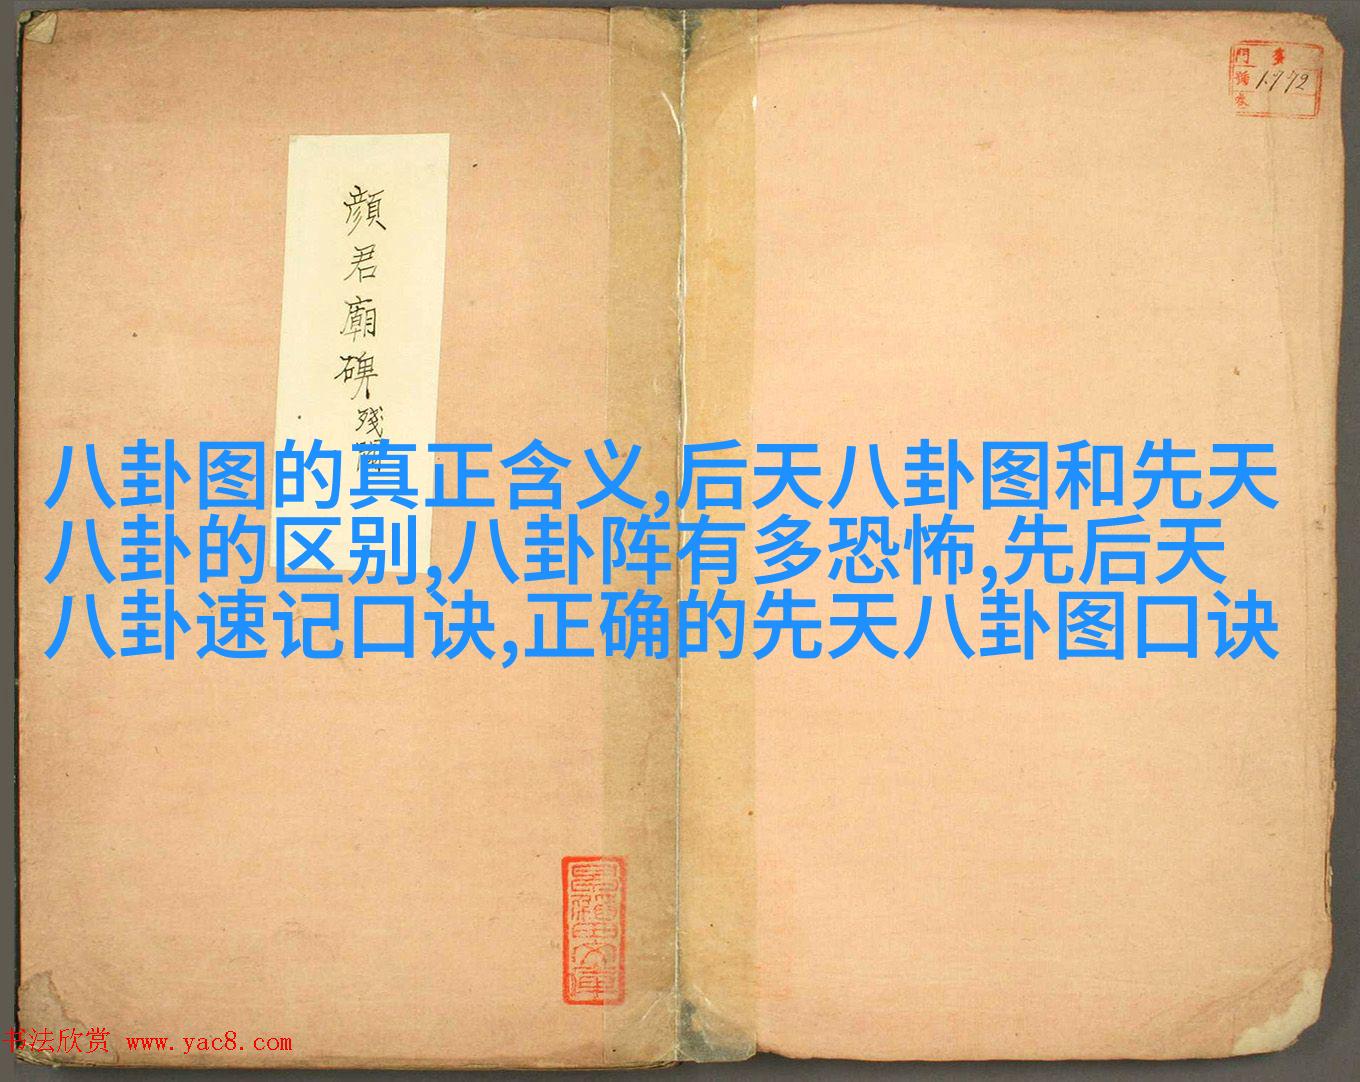 顔君廟碑残闕
門 多
號 1772
八卦图的真正含义,后天八卦图和先天
八卦的区别,八卦阵有多恐怖,先后天
八卦速记口诀,正确的先天八卦图口诀
书法欣赏 www.yac8.com